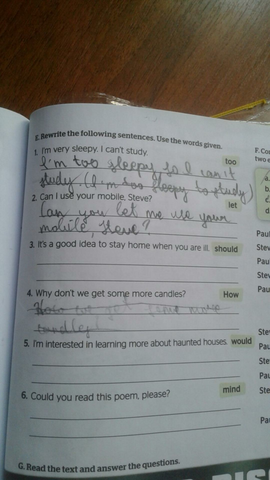 E. Rewrite the following sentences. Use the words given.
1. I'm very sleepy. I can't study. too
I'm too sleepy so I can't
study (I'm too sleepy to study)
2. Can I use your mobile, Steve? let
Can you let me use your
mobile, Steve?
3. It's a good idea to stay home when you are ill. should
4. Why don't we get some more candles? How
get some more
5. I'm interested in learning more about haunted houses. would
6. Could you read this poem, please? mind
G. Read the text and answer the questions.
F. Co
two
Pau
Stev
Pau
Stev
Pau
Ste
Pau
Ste
Pau
Ste
Pau